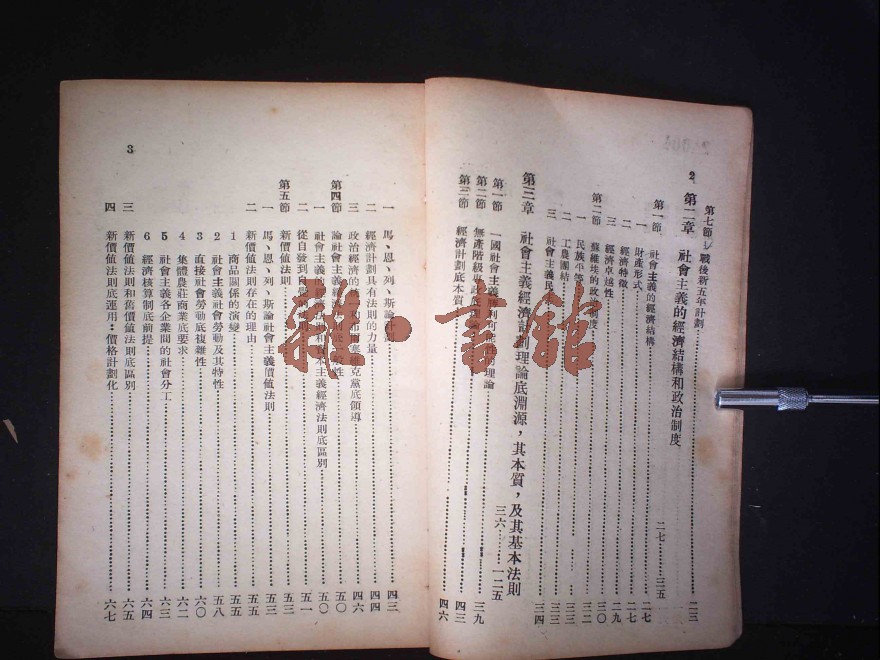 2
第七節 戰後新五年計劃……二三
第二章 社會主義的經濟結構和政治制度……二七……三五
第一節 社會主義的經濟結構……二七
一 財產形式……二七
二 經濟特徵……二九
三 經濟卓越性……三〇
第二節 蘇維埃的政治制度……三二
一 民族平等……三三
二 工農團結……三三
三 社會主義民主……三四
第三章 社會主義經濟計劃理論底淵源，其本質，及其基本法則……三六……一二五
第一節 一國社會主義勝利可能性底理論
第二節 無產階級專政底理論……三九
第三節 經濟計劃底本質……四三
四六
3
一 馬、恩、列、斯論計劃……四三
二 經濟計劃具有法則的力量……四四
三 政治經濟的統一和布爾塞維克黨底領導……四六
第四節 論社會主義經濟法則底一般性……五〇
一 社會主義的經濟法則和資本主義經濟法則底區別……五〇
二 從自發到自覺的法則……五一
第五節 新價值法則……五三
一 馬、恩、列、斯論社會主義價值法則……五三
二 新價值法則存在的理由……五五
1 商品關係的演變……五五
2 社會主義社會勞動及其特性……五八
3 直接社會勞動底複雜性……六〇
4 集體農莊商業底要求……六二
5 社會主義各企業間的社會分工……六三
6 經濟核算制底前提……六四
三 新價值法則和舊價值法則底區別……六五
四 新價值法則底運用：價格計劃化……六七
雜·書館